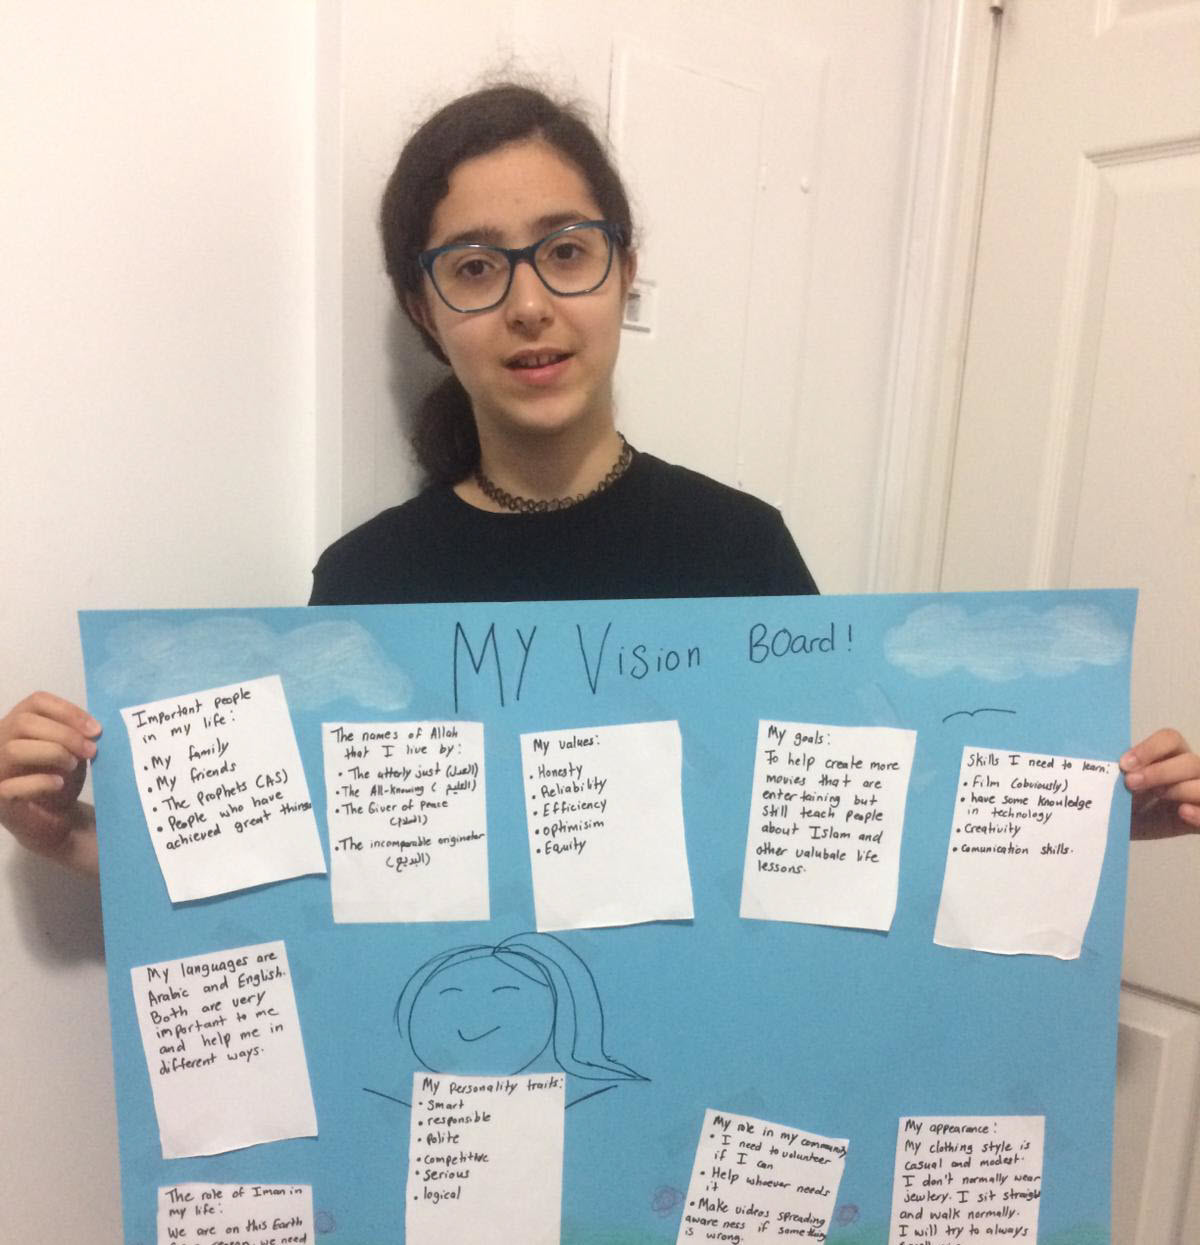 MY Vision BOard!
Important people
in my life:
• My family
• My friends
• The Prophets (AS)
• People who have
achieved great things
The names of Allah
that I live by:
• The utterly just (العدل)
• The All-knowing (العليم)
• The Giver of Peace
(السلام)
• The incomparable originator
(البديع)
My values:
• Honesty
• Reliability
• Efficiency
• optimism
• Equity
My goals:
To help create more
movies that are
entertaining but
still teach people
about Islam and
other valubale life
lessons.
Skills I need to learn:
• Film (obviously)
• have some knowledge
in technology
• Creativity
• comunication skills.
My languages are
Arabic and English.
Both are very
important to me
and help me in
different ways.
My personality traits:
• Smart
• responsible
• polite
• competitive
• serious
• logical
My role in my community
• I need to volunteer
if I can
• Help whoever needs
it
• Make videos spreading
awareness if something
is wrong.
My appearance:
My clothing style is
casual and modest.
I don't normally wear
jewlery. I sit straight
and walk normally.
I will try to always
The role of Iman in
my life:
We are on this Earth
reason. we need